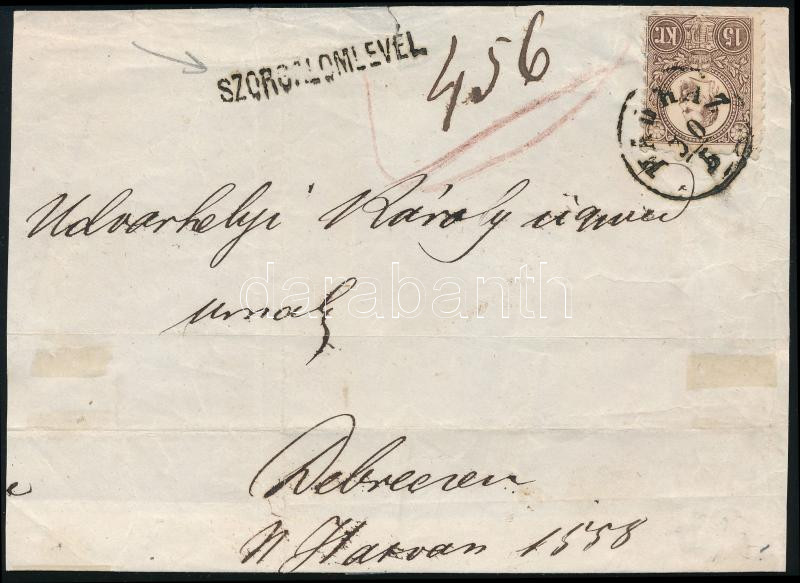 SZORGALOMLEVÉL
456
15 KR.
30
5
Udvarhelyi Károly
urnak
darabanth
Debreczen
N Hatvan 1558